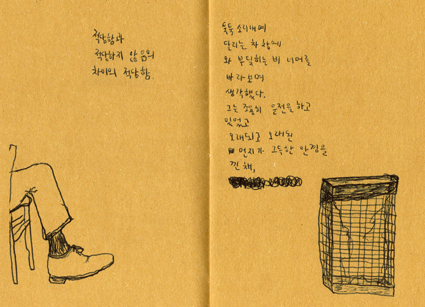 적당함과
적당하지 않음의
차이의 적당함.
툭툭 소리내며
달리는 차 창에
와 부딪히는 비 너머를
바라보며
생각했다.
그는 조용히 운전을 하고
있었고
오래되고 오래된
먼지가 그득한 안경을
낀 채,